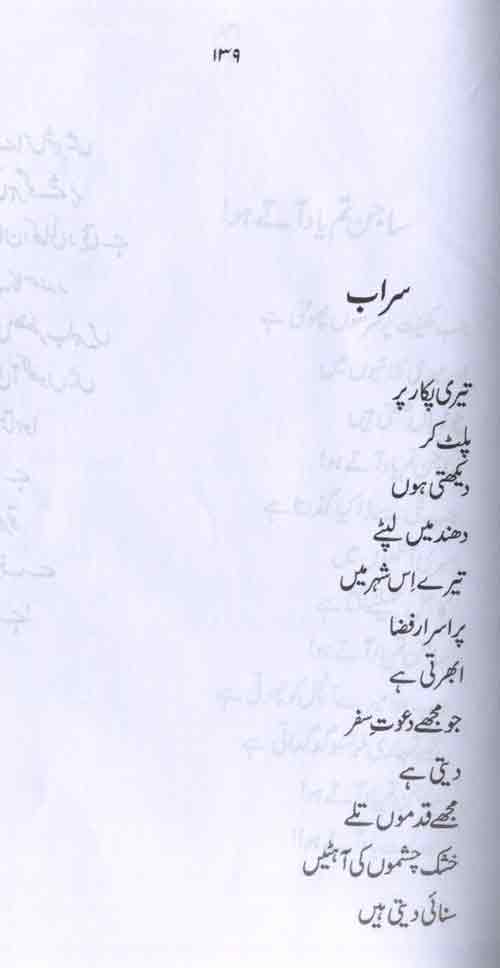 ۱۳۹
سراب
تیری پکار پر
پلٹ کر
دیکھتی ہوں
دھند میں لپٹے
تیرے اِس شہر میں
پراسرار فضا
ابھرتی ہے
جو مجھے دعوتِ سفر
دیتی ہے
مجھے قدموں تلے
خشک چشموں کی آہٹیں
سنائی دیتی ہیں